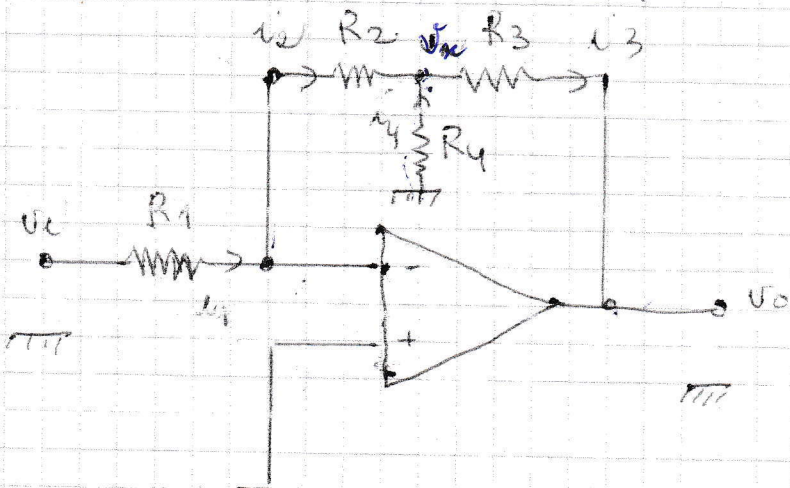 i2 R2 vx R3 i3
i4 R4
R1
vi
i1
-
+
vo